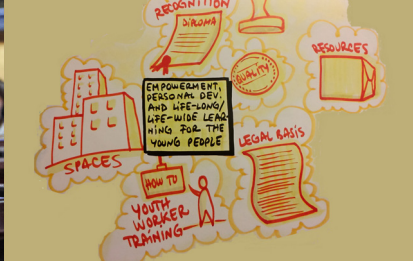 RECOGNITION
DIPLOMA
RESOURCES
QUALITY
EMPOWERMENT,
PERSONAL DEV.
AND LIFE-LONG/
LIFE-WIDE LEAR-
NING FOR THE
YOUNG PEOPLE
LEGAL BASIS
SPACES
HOW TO
YOUTH
WORKER
TRAINING